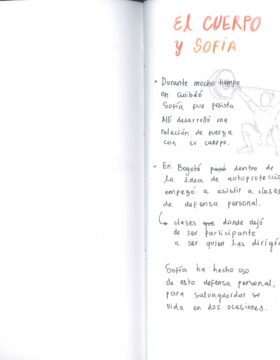 EL CUERPO
Y SOFÍA.
• Durante mucho tiempo
en Quibdó
Sofía fue pesista
Allí desarrolló una
relación de fuerza
con su cuerpo.
• En Bogotá pasó dentro de
la idea de autoprotecció
empezó a asistir a clases
de defensa personal.
↳ clases que donde dejó
de ser participante
a ser quien las dirigía
Sofía ha hecho uso
de esta defensa personal,
para salvaguardar su
vida en dos ocasiones.